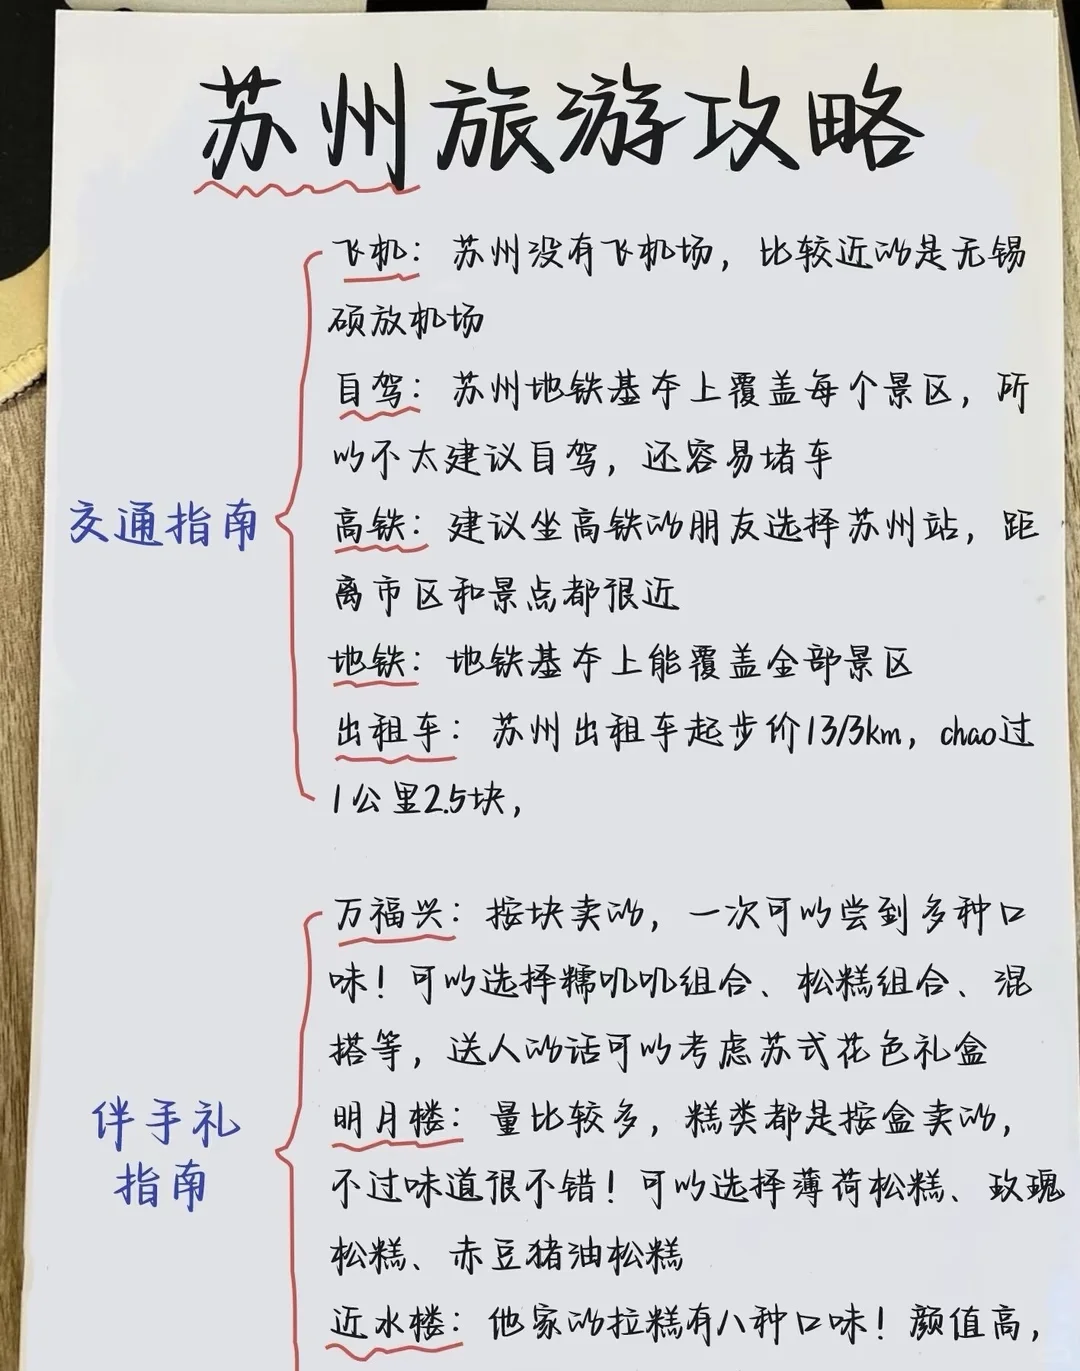 苏州旅游攻略
飞机：苏州没有飞机场，比较近的是无锡
硕放机场
自驾：苏州地铁基本上覆盖每个景区，所
以不太建议自驾，还容易堵车
交通指南
高铁：建议坐高铁的朋友选择苏州站，距
离市区和景点都很近
地铁：地铁基本上能覆盖全部景区
出租车：苏州出租车起步价13/3km，chao过
1公里2.5块，
万福兴：按块卖的，一次可以尝到多种口
味！可以选择糯叽叽组合、松糕组合、混
搭等，送人的话可以考虑苏式花色礼盒
伴手礼
指南
明月楼：量比较多，糕类都是按盒卖的，
不过味道很不错！可以选择薄荷松糕、玫瑰
松糕、赤豆猪油松糕
近水楼：他家的拉糕有八种口味！颜值高，